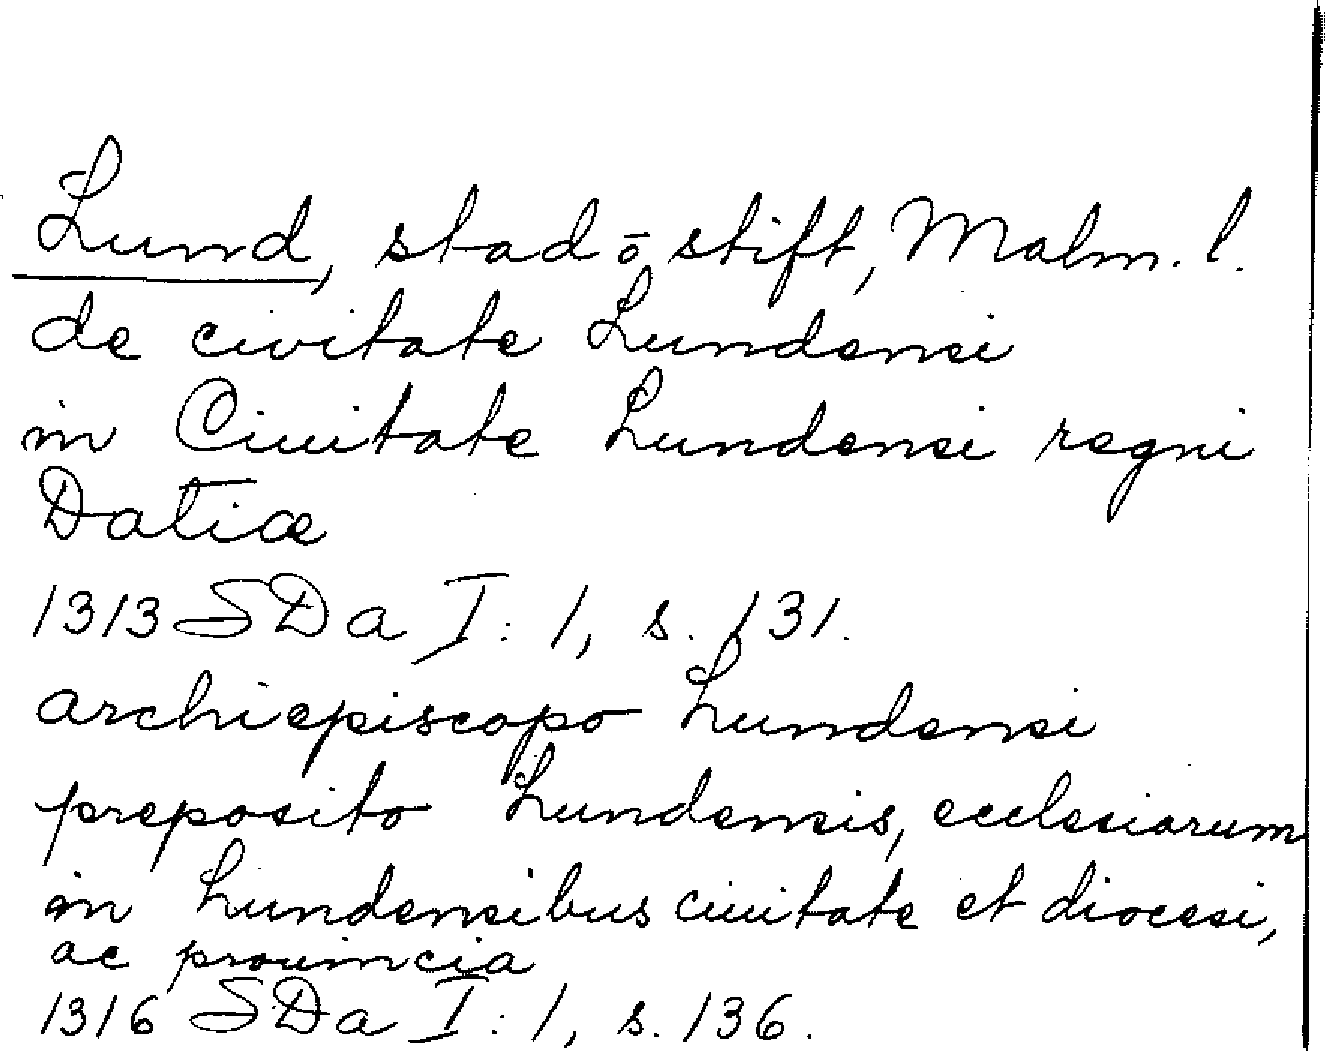 Lund, stad o̅ stift, Malm. l.
de civitate Lundensi
in Ciuitate Lundensi regni
Datiæ
1313 SDa I: 1, s. 131.
archiepiscopo Lundensi
preposito Lundensis, ecclesiarum
in Lundensibus ciuitate et diocesi,
ac prouincia
1316 SDa I: 1, s. 136.